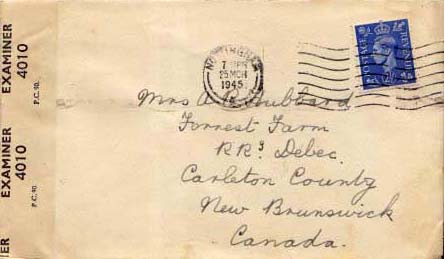 EXAMINER
4010
P.C. 90.
EXAMINER
4010
P.C. 90.
NOTTINGHAM
7 PM
25 MCH
1945
POSTAGE
REVENUE
2½
Mrs A. R. Hubbard
Forrest Farm
R R 3 Debec
Carleton County
New Brunswick
Canada.